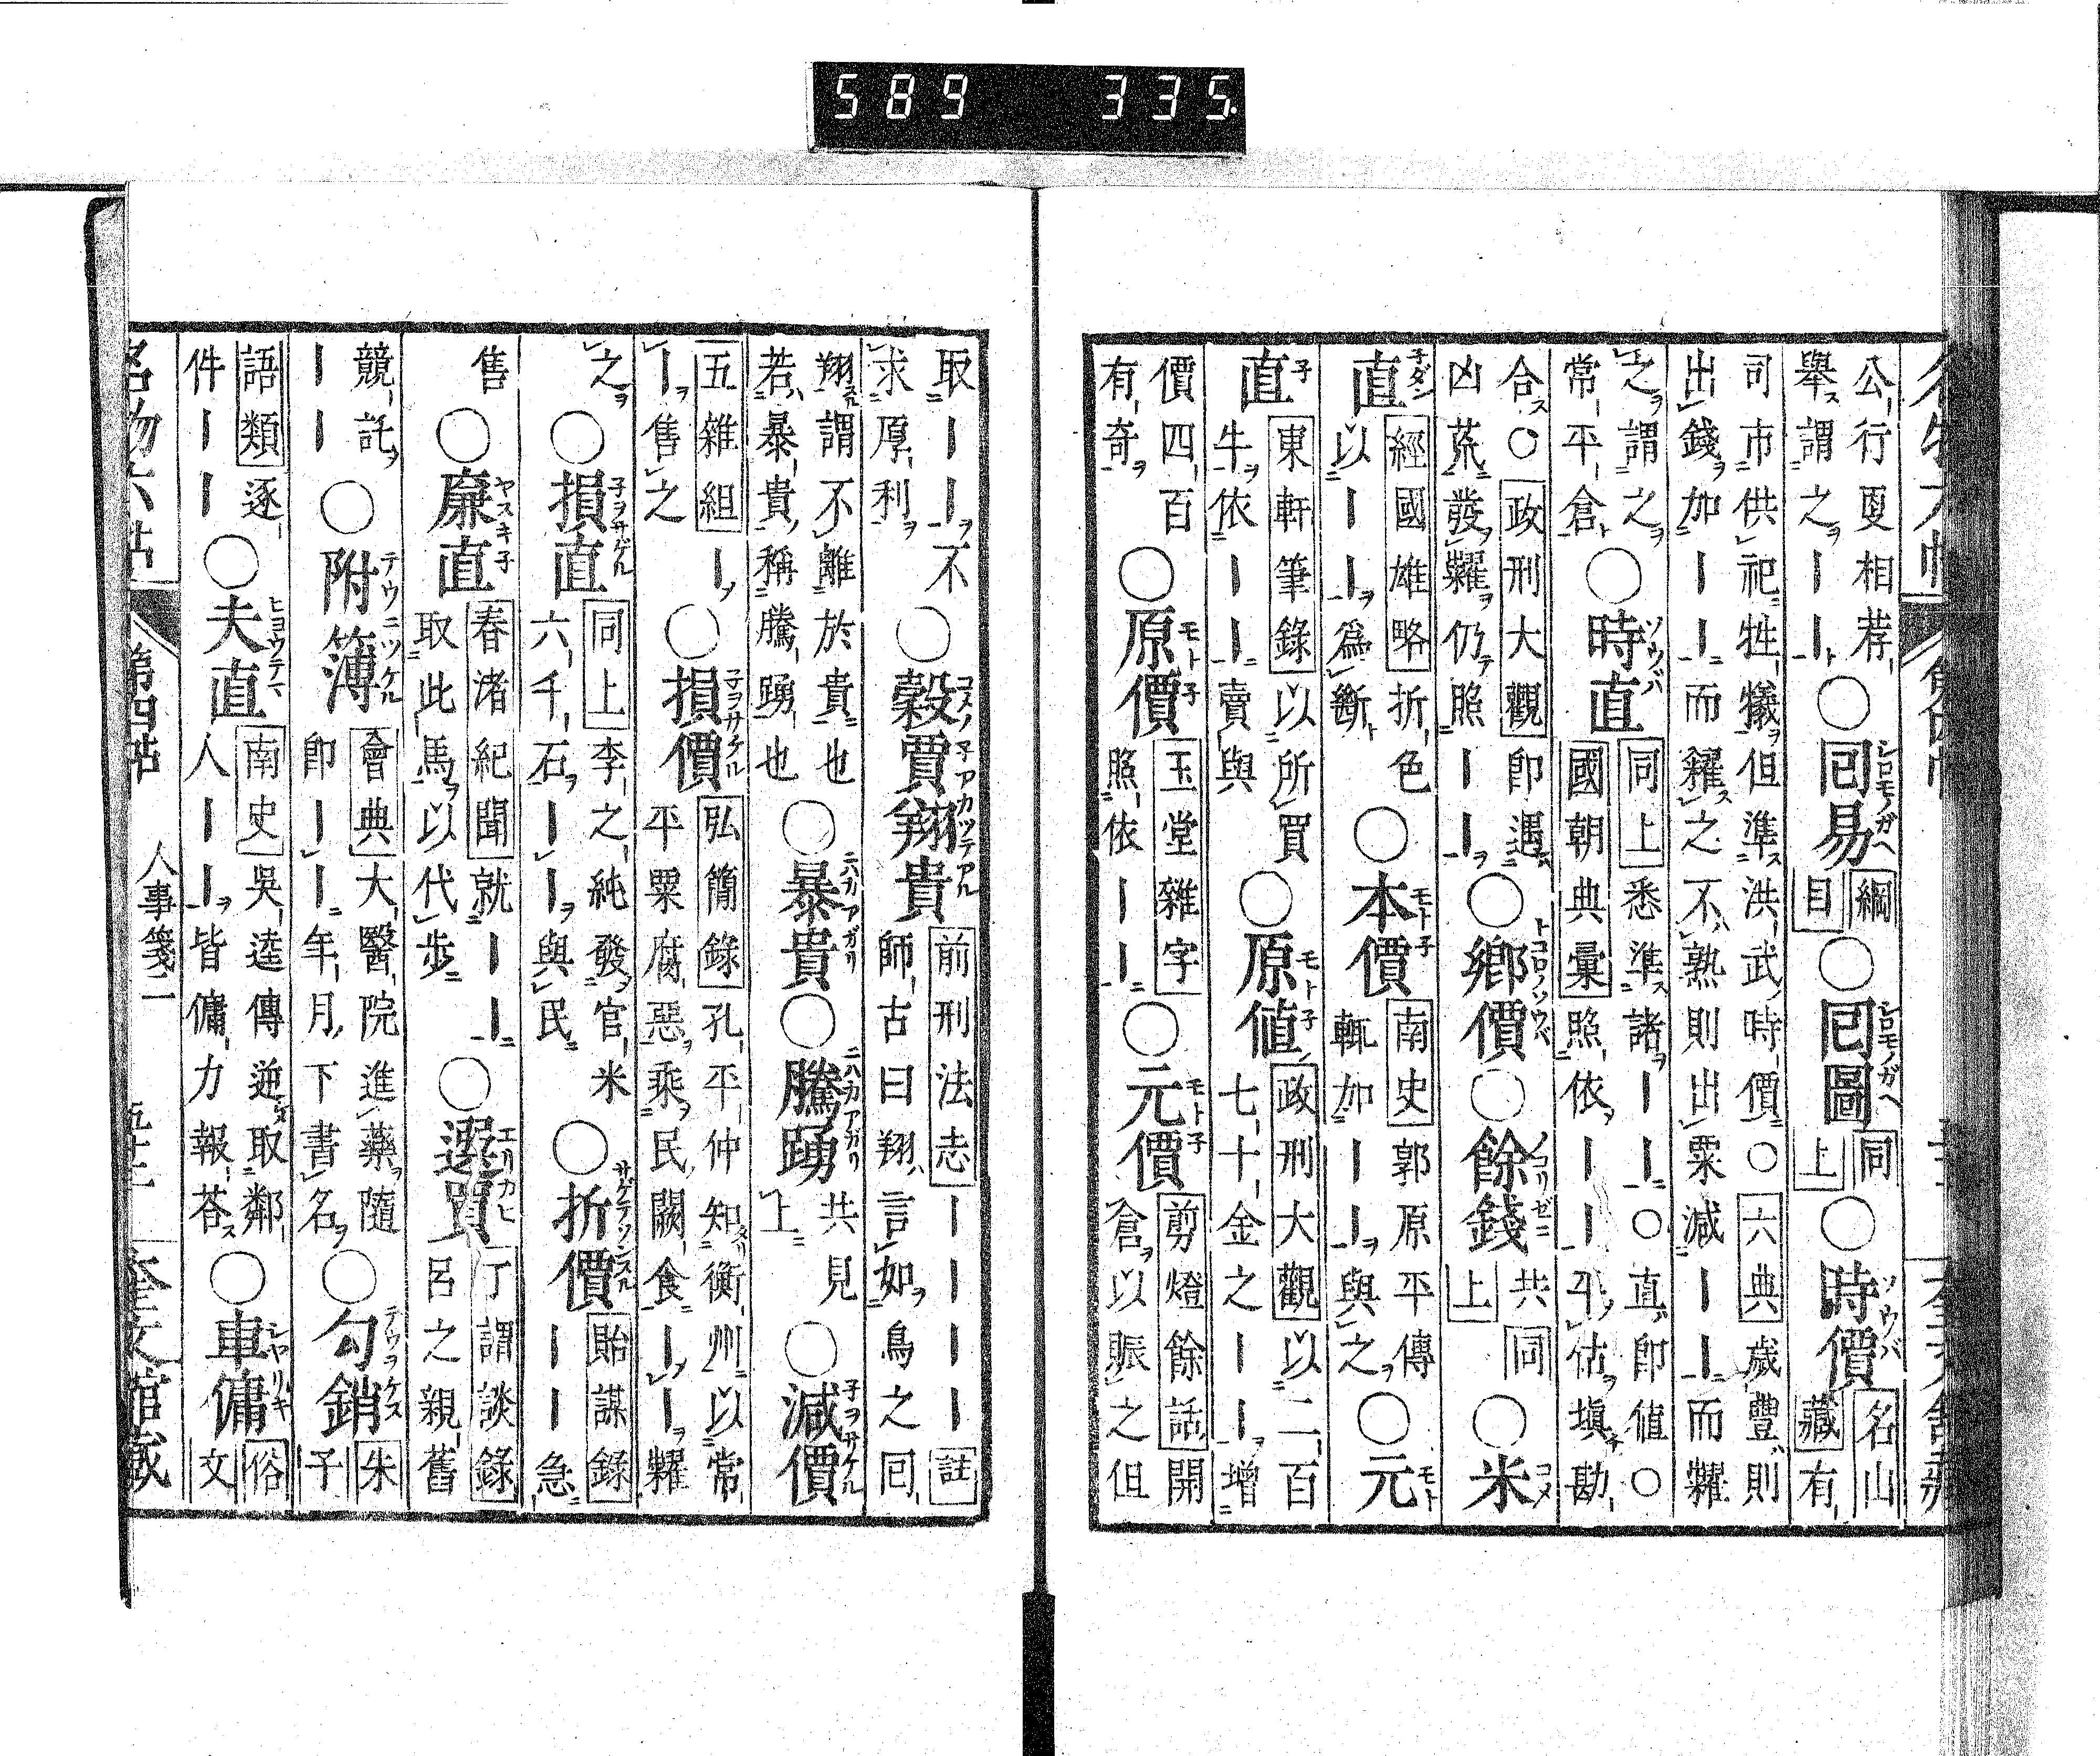 公行更相荐舉謂之丨丨○囘易綱目○囘圖同上○時價名山藏有
司市供祀牲犠但準洪武時價○六典歳豐則
出錢加丨丨而糴之不熟則出粟減丨丨而糶
之謂之常平倉○時直同上悉準諸丨丨○直即値○國朝典彙照依丨丨平估塡勘
合○政刑大觀即遇凶荒發糶仍照丨丨○鄉價○餘錢共同上○米
直經國雄略折色以丨丨爲斷○本價南史郭原平傳輒加丨丨與之○元
直東軒筆錄以所買牛依丨丨賣與○原値政刑大觀以二百七十金之丨丨增
價四百有奇○原價玉堂雜字照依丨丨○元價剪燈餘話開倉以賑之但
取丨丨不求厚利○穀賈翔貴前刑法志丨丨丨丨註師古曰翔言如鳥之囘
翔謂不離於貴也若暴貴稱騰踴也○暴貴○騰踴共見上○減價
五雜組丨丨售之○損價弘簡錄孔平仲知衡州以常平粟腐惡乘民闕食丨丨糶
之○損直同上李之純發官米六千石丨丨與民○折價貽謀錄丨丨急
售○廉直春渚紀聞就丨丨取此馬以代步○選買丁謂談錄呂之親舊
競託丨丨○附簿會典大醫院進藥隨即丨丨年月下書名○勾銷朱子
語類逐件丨丨○夫直南史吳逵傳逆取鄰人丨丨皆傭力報荅○車傭俗文
名物六帖 第四帖 人事箋二 五十二 奎文館藏
589 335